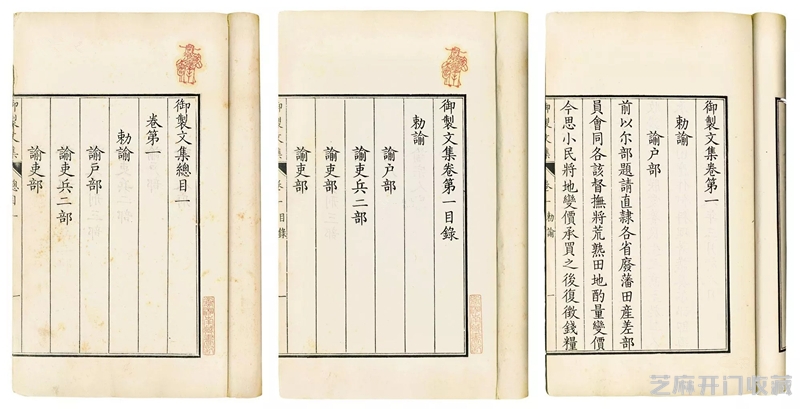 御製文集總目一
卷第一
勅諭
諭户部
諭吏兵二部
諭吏部
御製文集 總目一 一
御製文集卷第一目錄
勅諭
諭户部
諭吏兵二部
諭吏部
諭吏部
御製文集 卷一目錄 一
御製文集卷第一
勅諭
諭户部
前以尔部題請直隷各省廢藩田産差部
員會同各該督撫將荒熟田地酌量變價
今思小民將地變價承買之後復徵錢糧
御製文集 卷一 勅諭 一
芝麻开门收藏